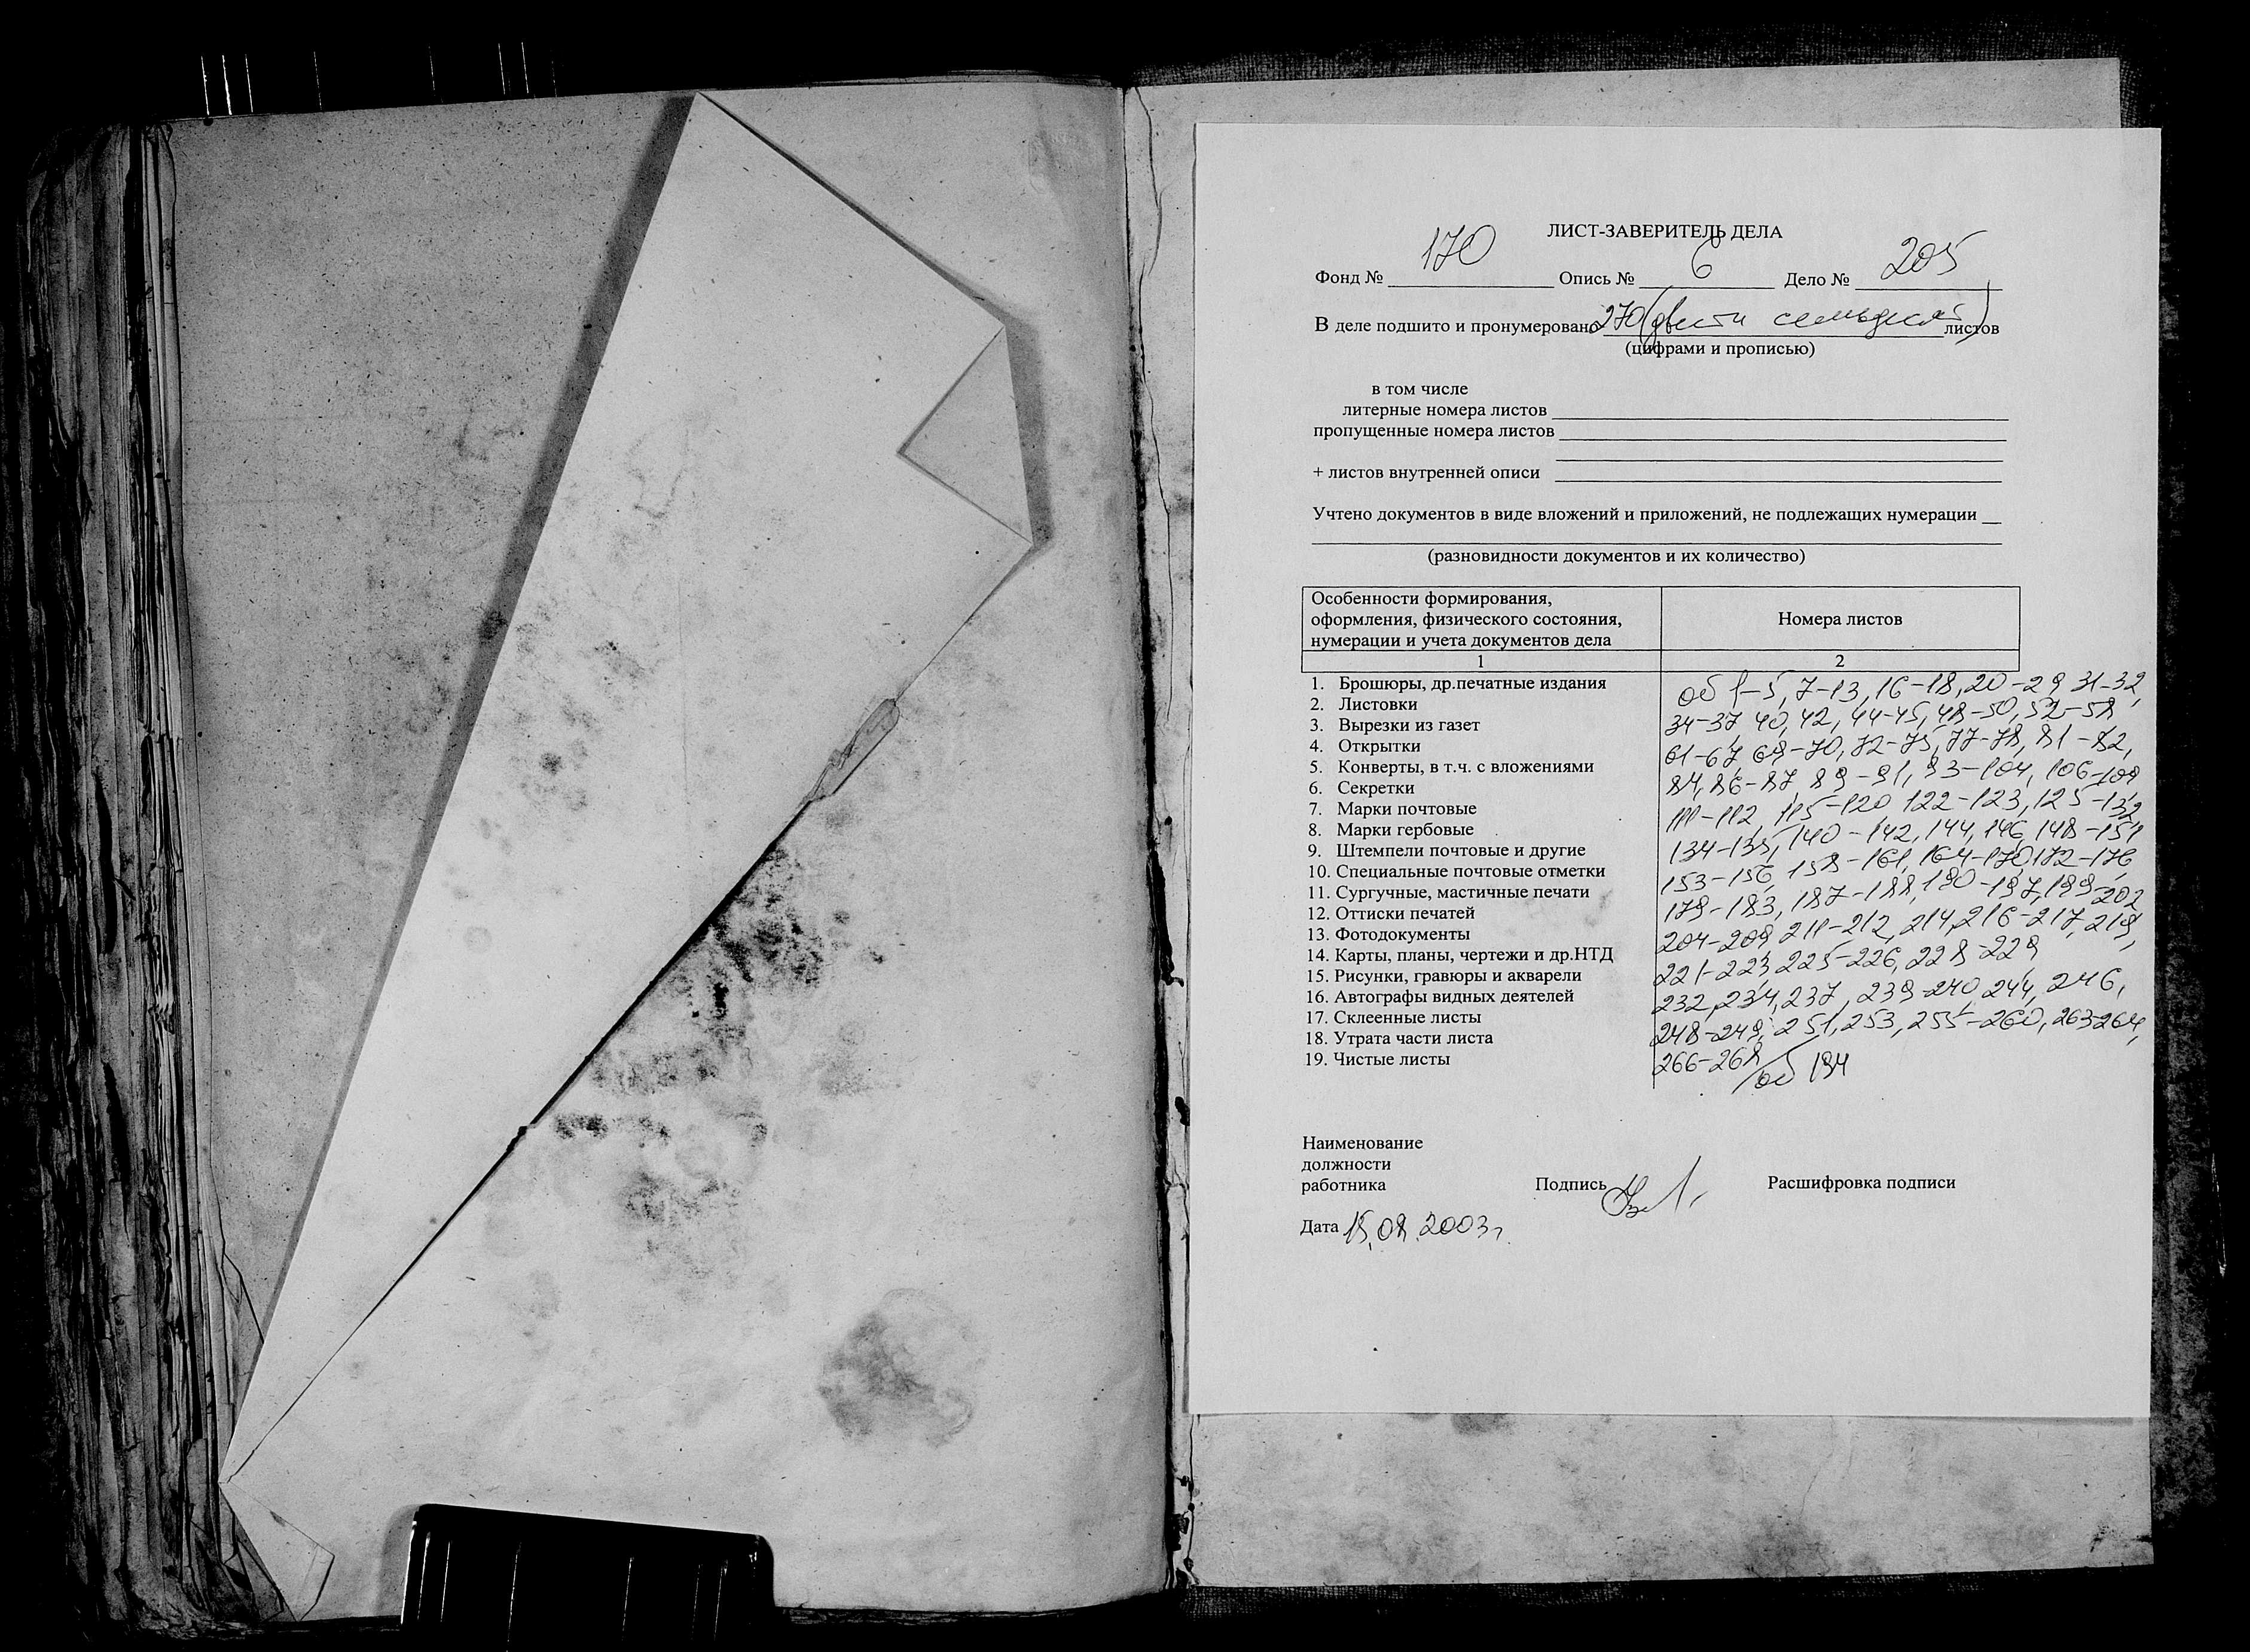 ЛИСТ-ЗАВЕРИТЕЛЬ ДЕЛА
Фонд № 170 Опись № 6 Дело № 205
В деле подшито и пронумеровано 270 (двести семьдесят) листов
(цифрами и прописью)
в том числе
литерные номера листов
пропущенные номера листов
+ листов внутренней описи
Учтено документов в виде вложений и приложений, не подлежащих нумерации
(разновидности документов и их количество)
Особенности формирования,
оформления, физического состояния,
нумерации и учета документов дела
Номера листов
1 2
1. Брошюры, др.печатные издания
2. Листовки
3. Вырезки из газет
4. Открытки
5. Конверты, в т.ч. с вложениями
6. Секретки
7. Марки почтовые
8. Марки гербовые
9. Штемпели почтовые и другие
10. Специальные почтовые отметки
11. Сургучные, мастичные печати
12. Оттиски печатей
13. Фотодокументы
14. Карты, планы, чертежи и др.НТД
15. Рисунки, гравюры и акварели
16. Автографы видных деятелей
17. Склеенные листы
18. Утрата части листа
19. Чистые листы
об 1-5, 7-13, 16-18, 20-29 31-32,
34-37, 40, 42, 44-45, 48-50, 52-58,
61-67, 69-70, 72-75, 77-78, 81-82,
84, 86-87, 89-91, 93-104, 106-109
111-112, 115-120 122-123, 125-132,
134-135, 140-142, 144, 146, 148-151
153-156, 158-161, 164-170, 172-176
179-183, 187-188, 190-197, 199-202
204-209, 211-212, 214, 216-217, 219,
221-223, 225-226, 228-229
232, 234, 237, 239-240, 244, 246,
248-249, 251, 253, 255-260, 263-264,
266-268 /об 194
Наименование
должности
работника Подпись Расшифровка подписи
Дата 15.08.2003г.